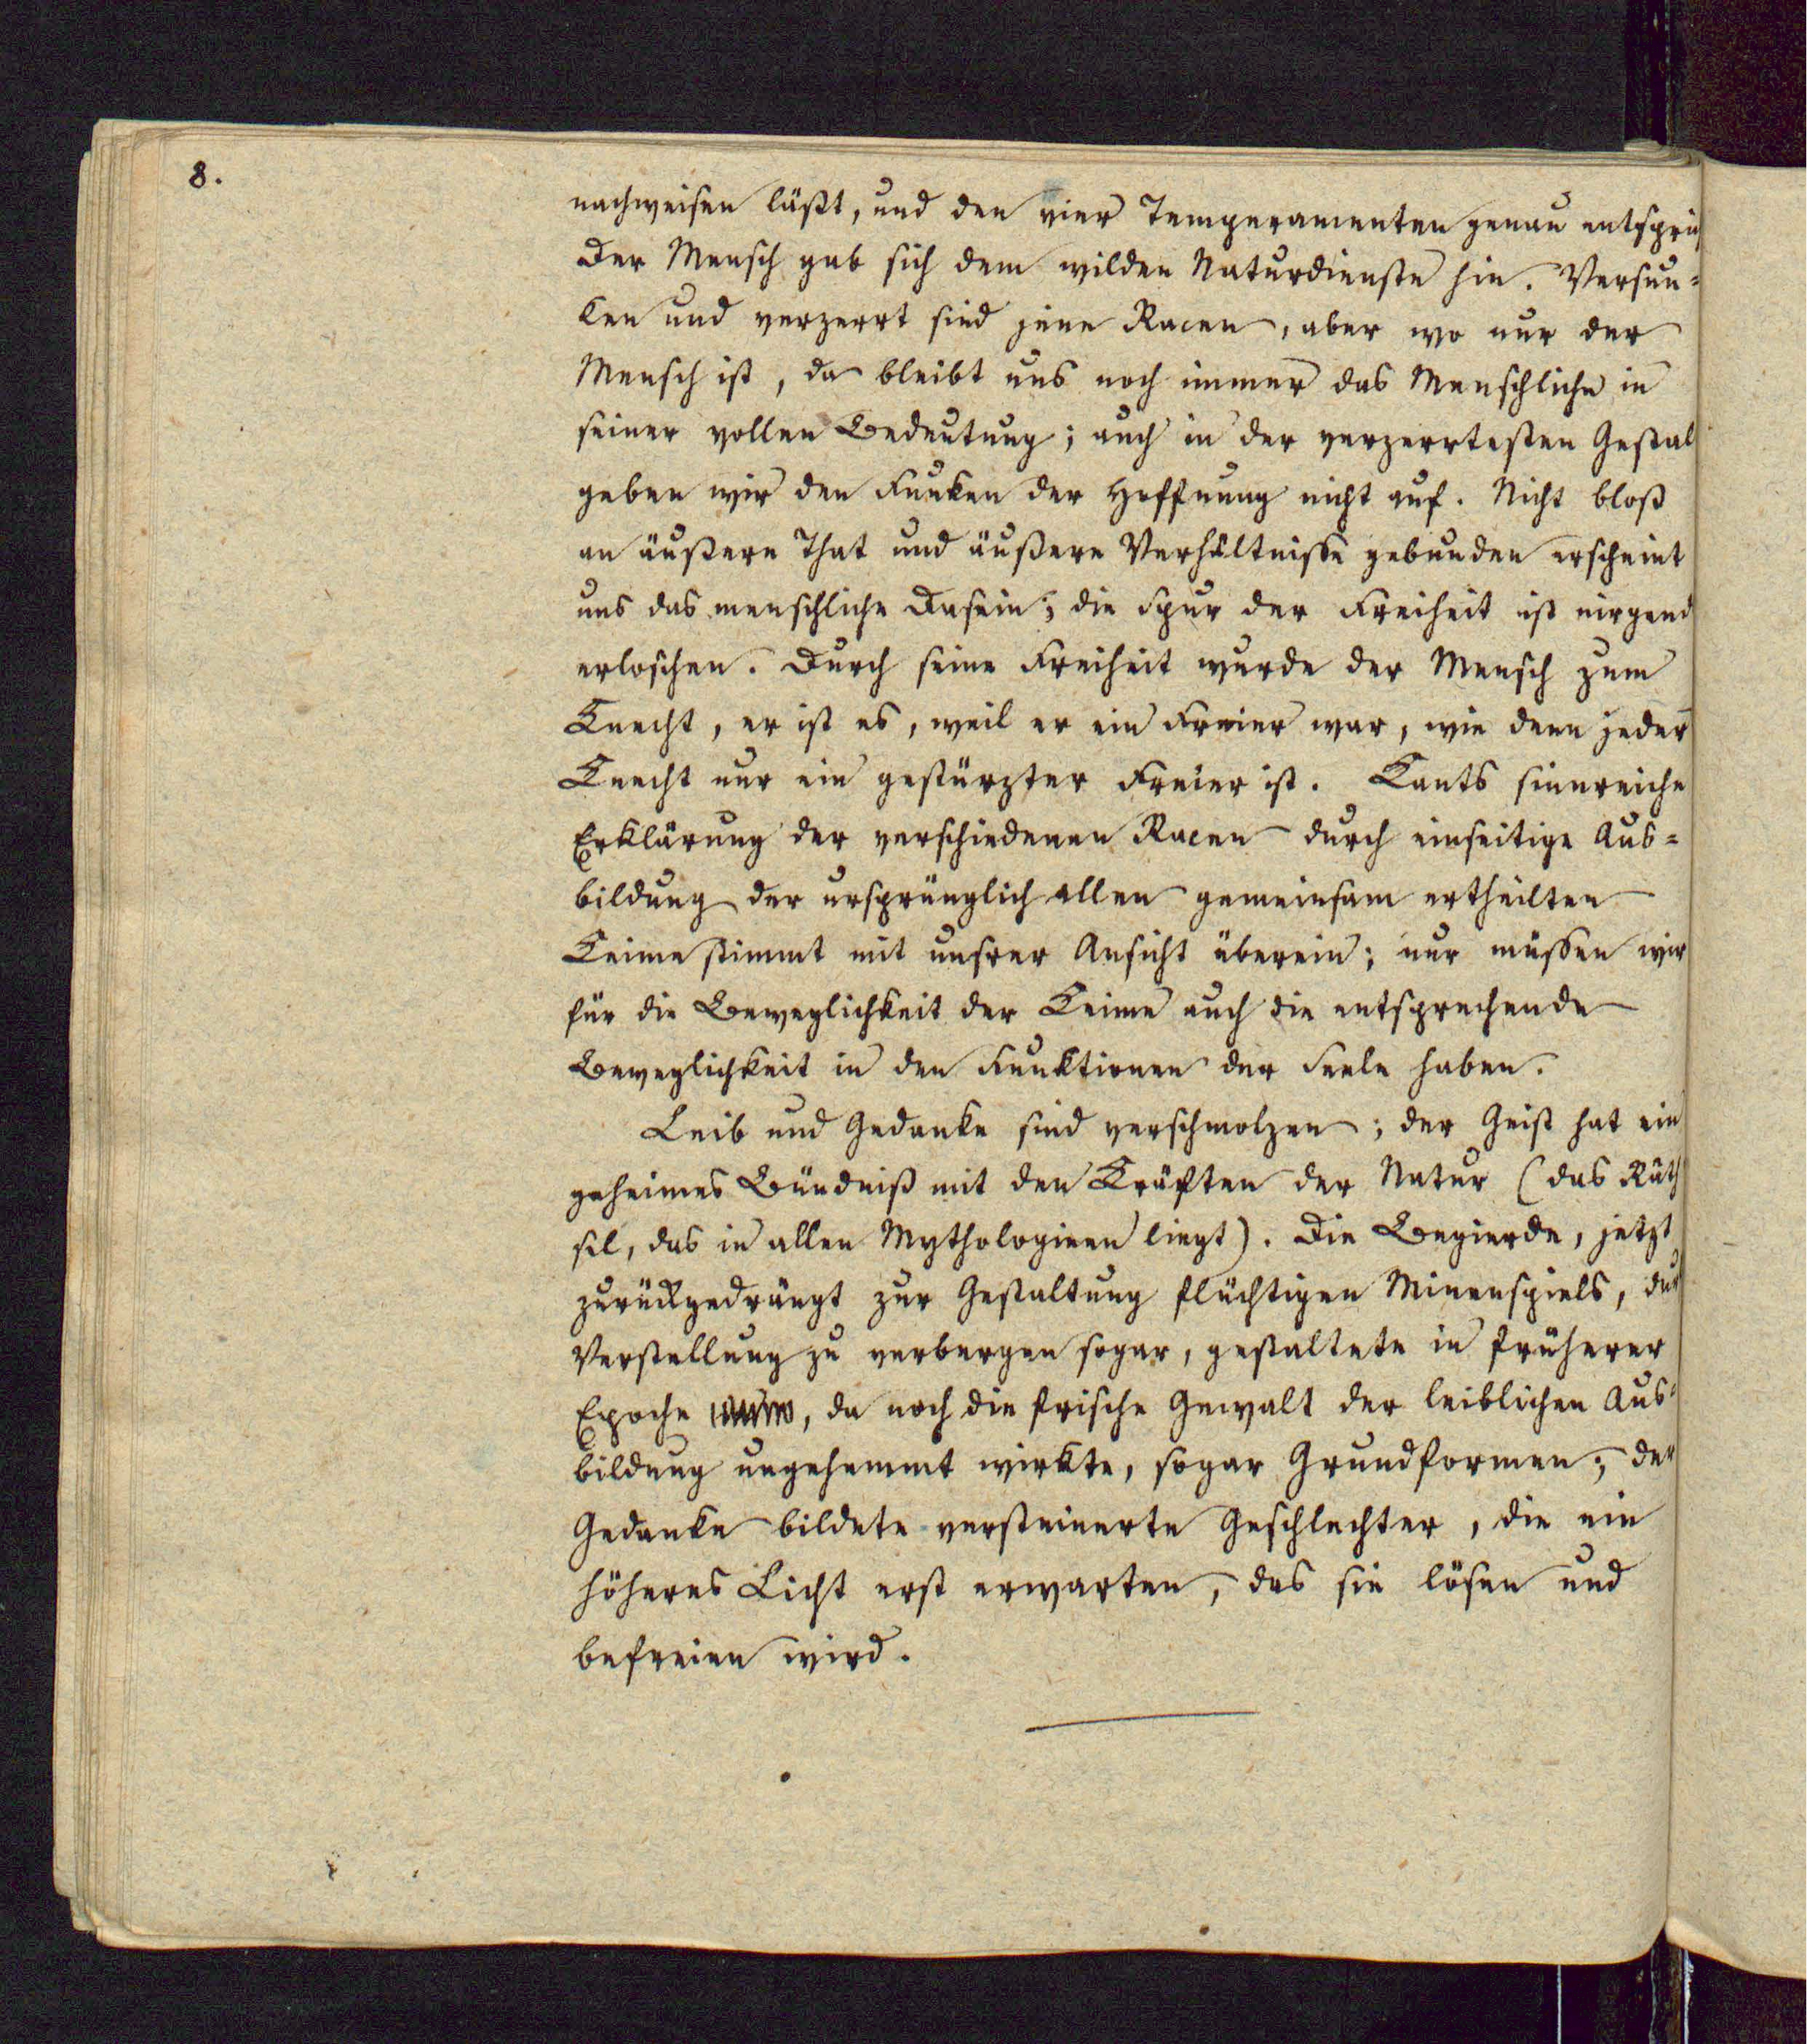 8.
nachweisen läßt, und den vier Temperamenten genau entspri
Der Mensch gab sich dem wilden Naturdienste hin. Versun=
ken und verzerrt sind jene Racen, aber wo nur der
Mensch ist, da bleibt uns noch immer das Menschliche in
seiner vollen Bedeutung; auch in der verzerrtesten Gestal
geben wir den Funken der Hoffnung nicht auf. Nicht bloß
an äußere That und äußere Verhältnisse gebunden erscheint
uns das menschliche Dasein; die Spur der Freiheit ist nirgend
erloschen. Durch seine Freiheit wurde der Mensch zum
Knecht, er ist es, weil er ein Freier war, wie denn jeder
Knecht nur ein gestürzter Freier ist. Kants sinnreiche
Erklärung der verschiedenen Racen durch einseitige Aus=
bildung der ursprünglich allen gemeinsam ertheilten
Keime stimmt mit unsrer Ansicht überein; nur müssen wir
für die Beweglichkeit der Keime auch die entsprechende
Beweglichkeit in den Funktionen der Seele haben.
Leib und Gedanke sind verschmolzen; der Geist hat ein
geheimes Bündniß mit den Kräften der Natur (das Räth
sel, das in allen Mythologieen liegt). Die Begierde, jetzt
zurückgedrängt zur Gestaltung flüchtigen Minenspiels, dur
Verstellung zu verbergen sogar, gestaltete in früherer
Epoche, da noch die frische Gewalt der leiblichen Aus=
bildung ungehemmt wirkte, sogar Grundformen; der
Gedanke bildete versteinerte Geschlechter, die ein
höheres Licht erst erwarten, das sie lösen und
befreien wird.